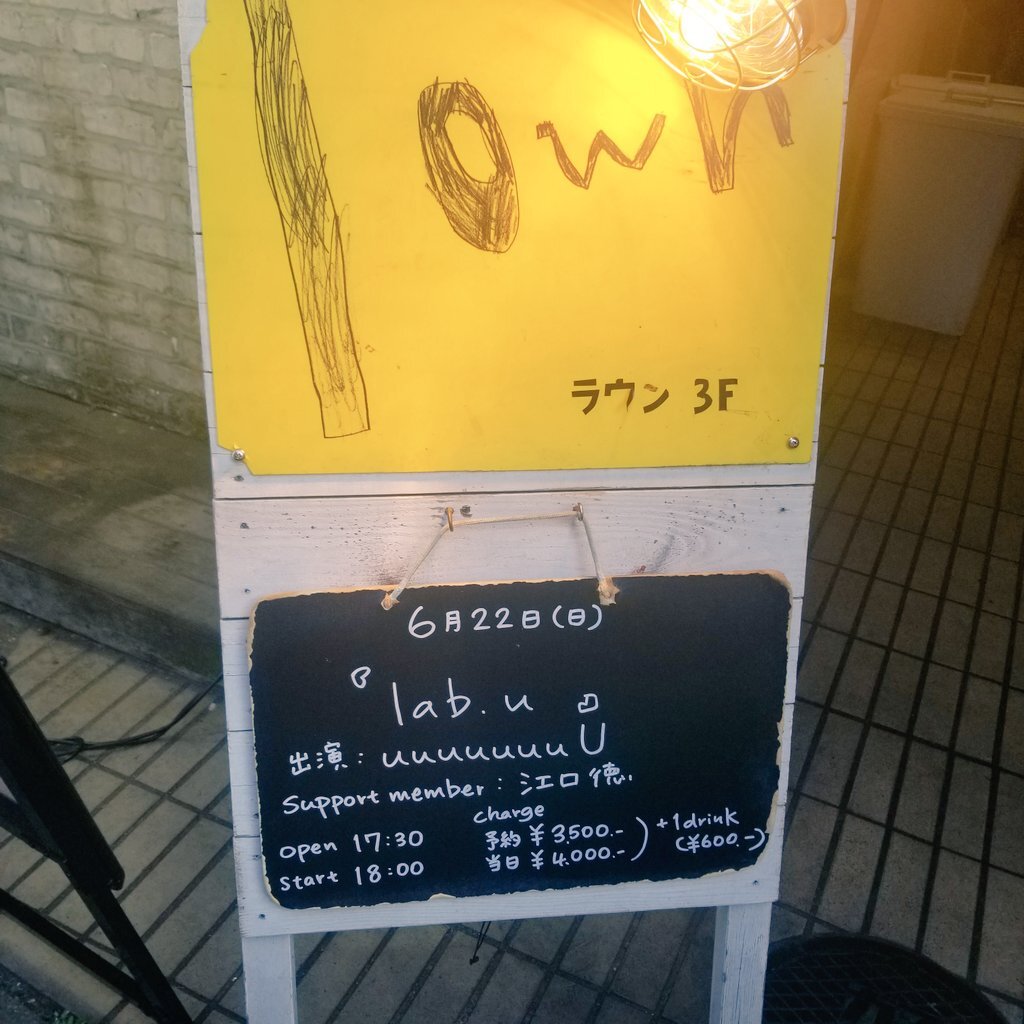 lown
ラウン 3F
6月22日(日)
『lab.u』
出演：uuuuuuuU
support member：江口 徳
open 17:30
start 18:00
charge
予約 ¥3,500.-
当日 ¥4,000.-
+1drink
(¥600.-)